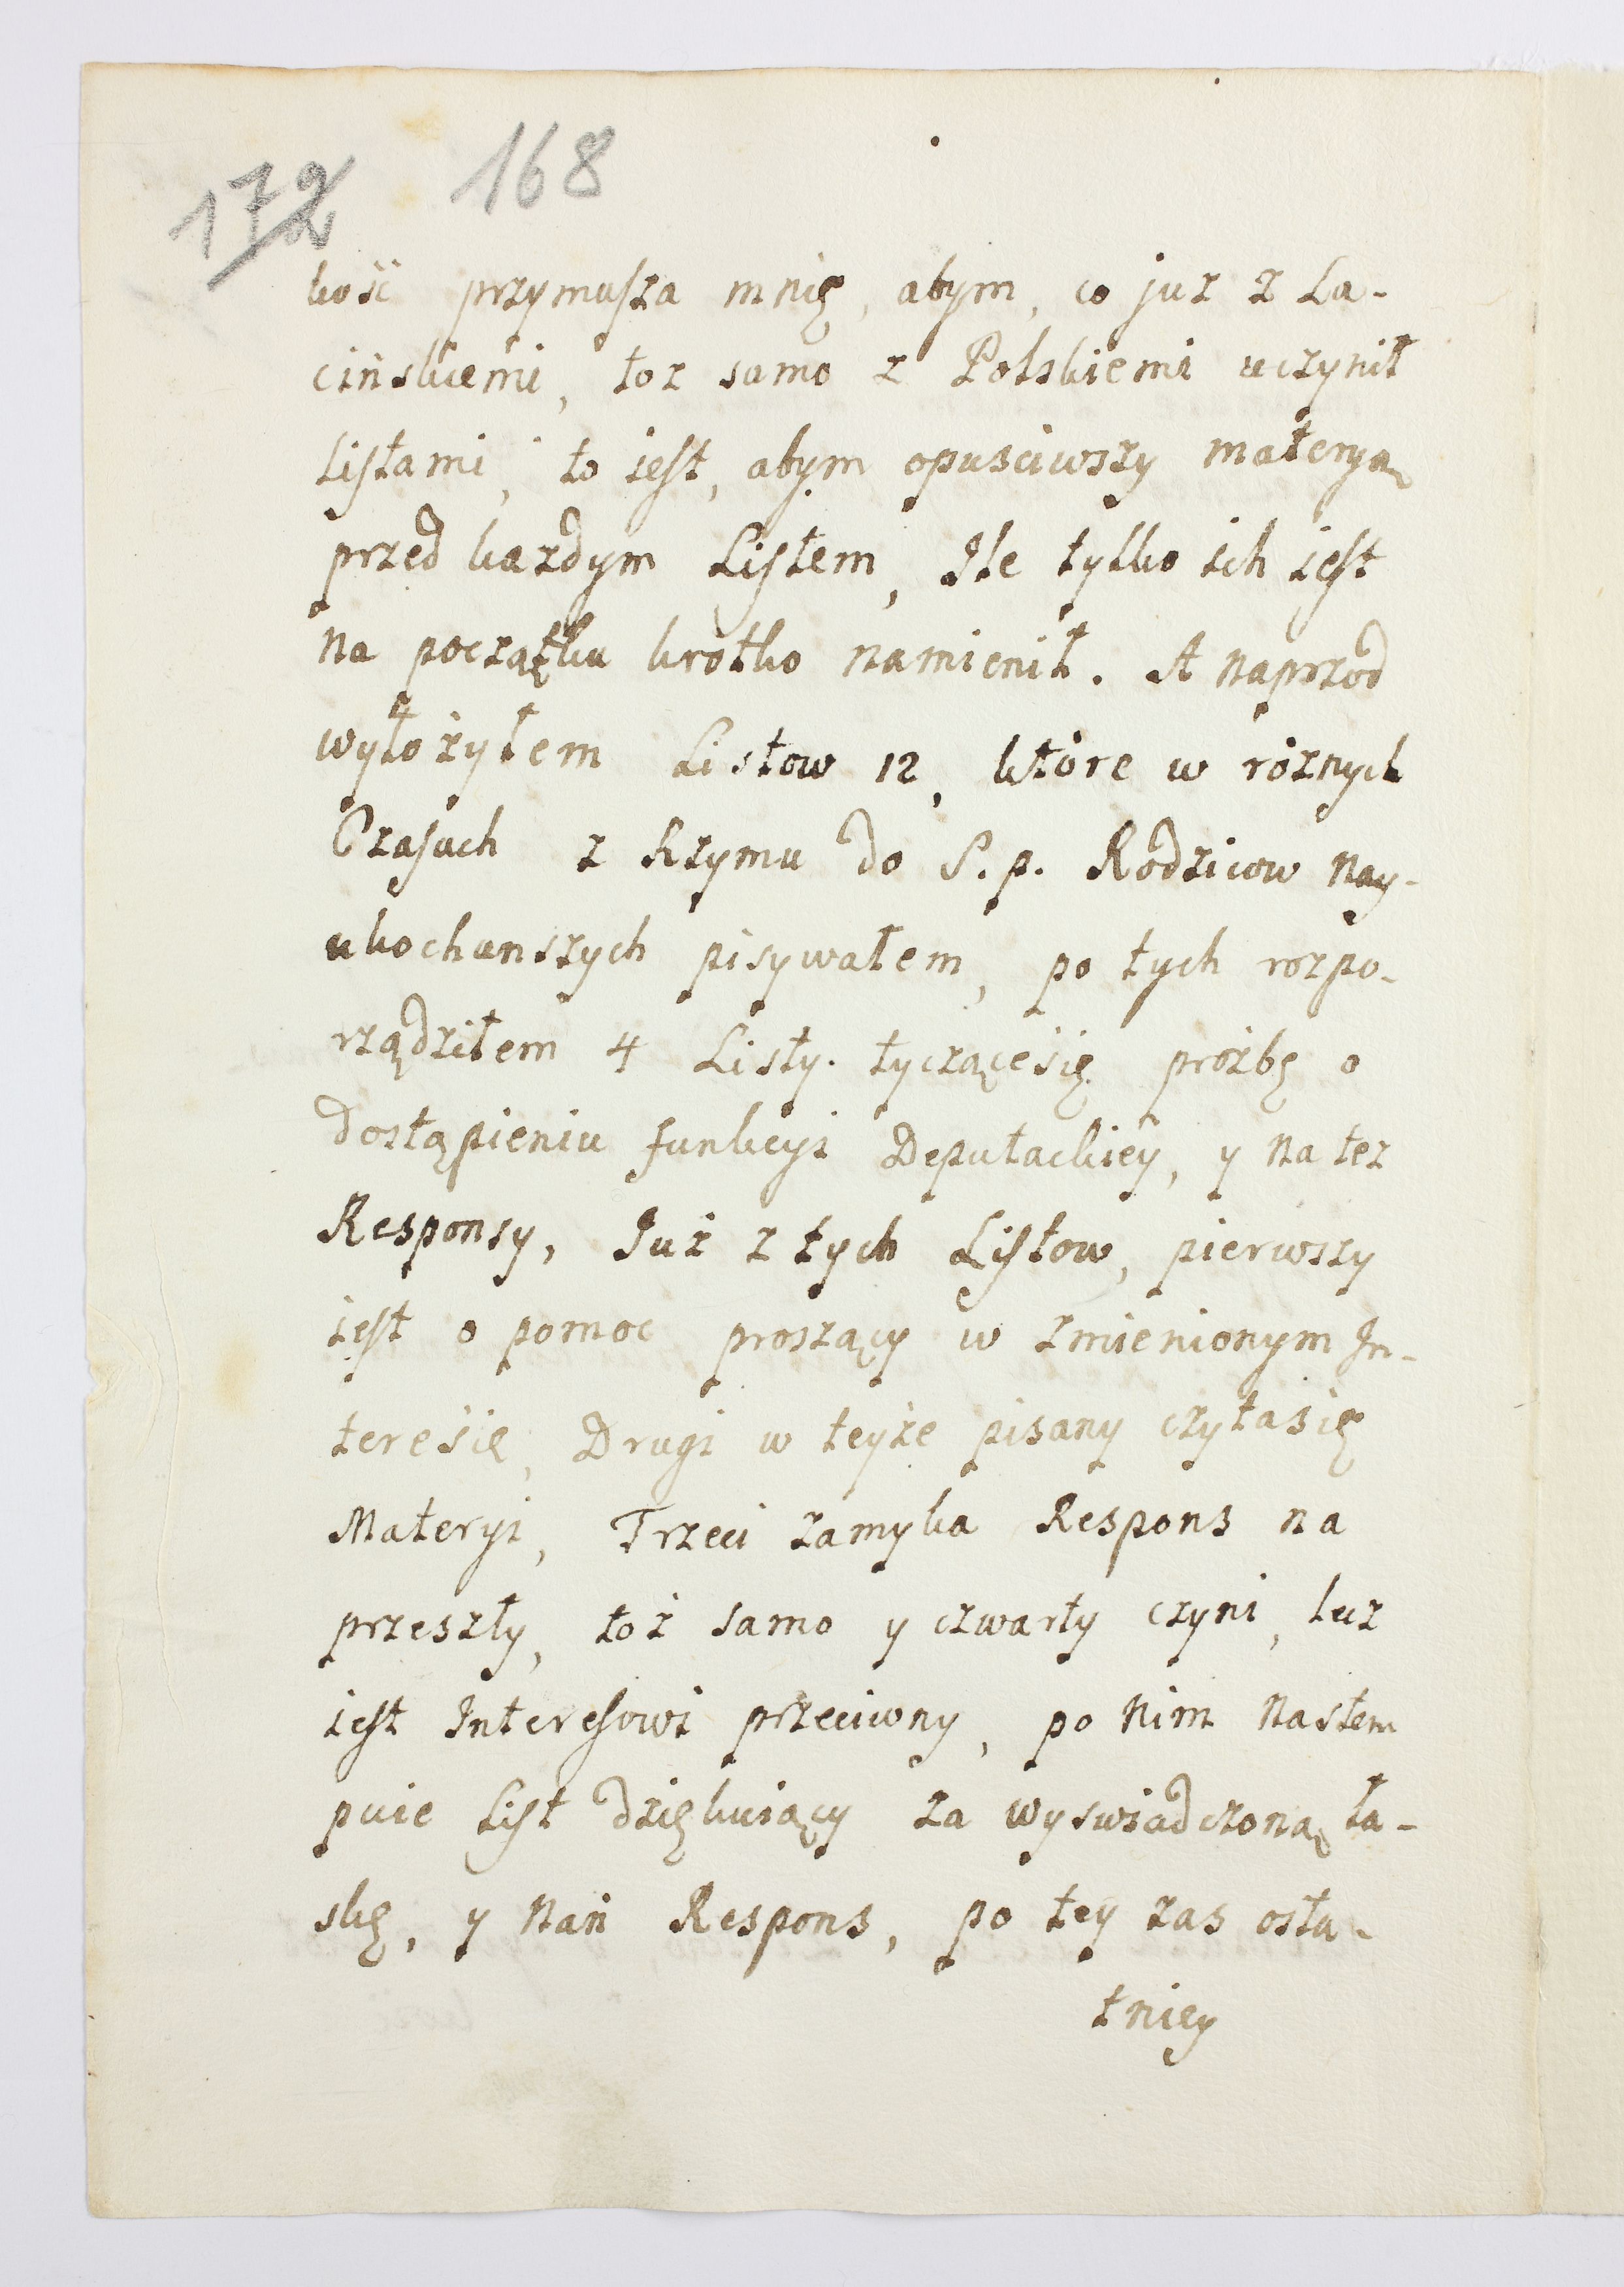 172 168
kość przymusza mnię, abym, co juz z Ła-
cińskiemi, toz samo z Polskiemi uczynił
Listami, to iest, abym opusciwszy materyą
przed kazdym Listem, Ile tylko ich iest
na początku krotko namienił. A naprzod
wyłożyłem Listow 12, ktore w roznych
Czasach z Rzymu do S. p. Rodzicow nay-
ukochanszych pisywałem, po tych rozpo-
rządziłem 4 Listy. tycząceśię prozbę o
dostąpieniu funkcyi Deputackiey, y na tez
Responsy, Już z tych Listow, pierwszy
iest o pomoc proszący w zmienionym In-
teresię, Drugi w teyże pisany czytasię
Materyi, Trzeci zamyka Respons na
przeszły, toż samo y czwarty czyni, lecz
iest Interesowi przeciwny, po nim nastem
puie List dziękuiący za wyswiadczoną ła-
skę, y nań Respons, po tey zas osta-
tniey